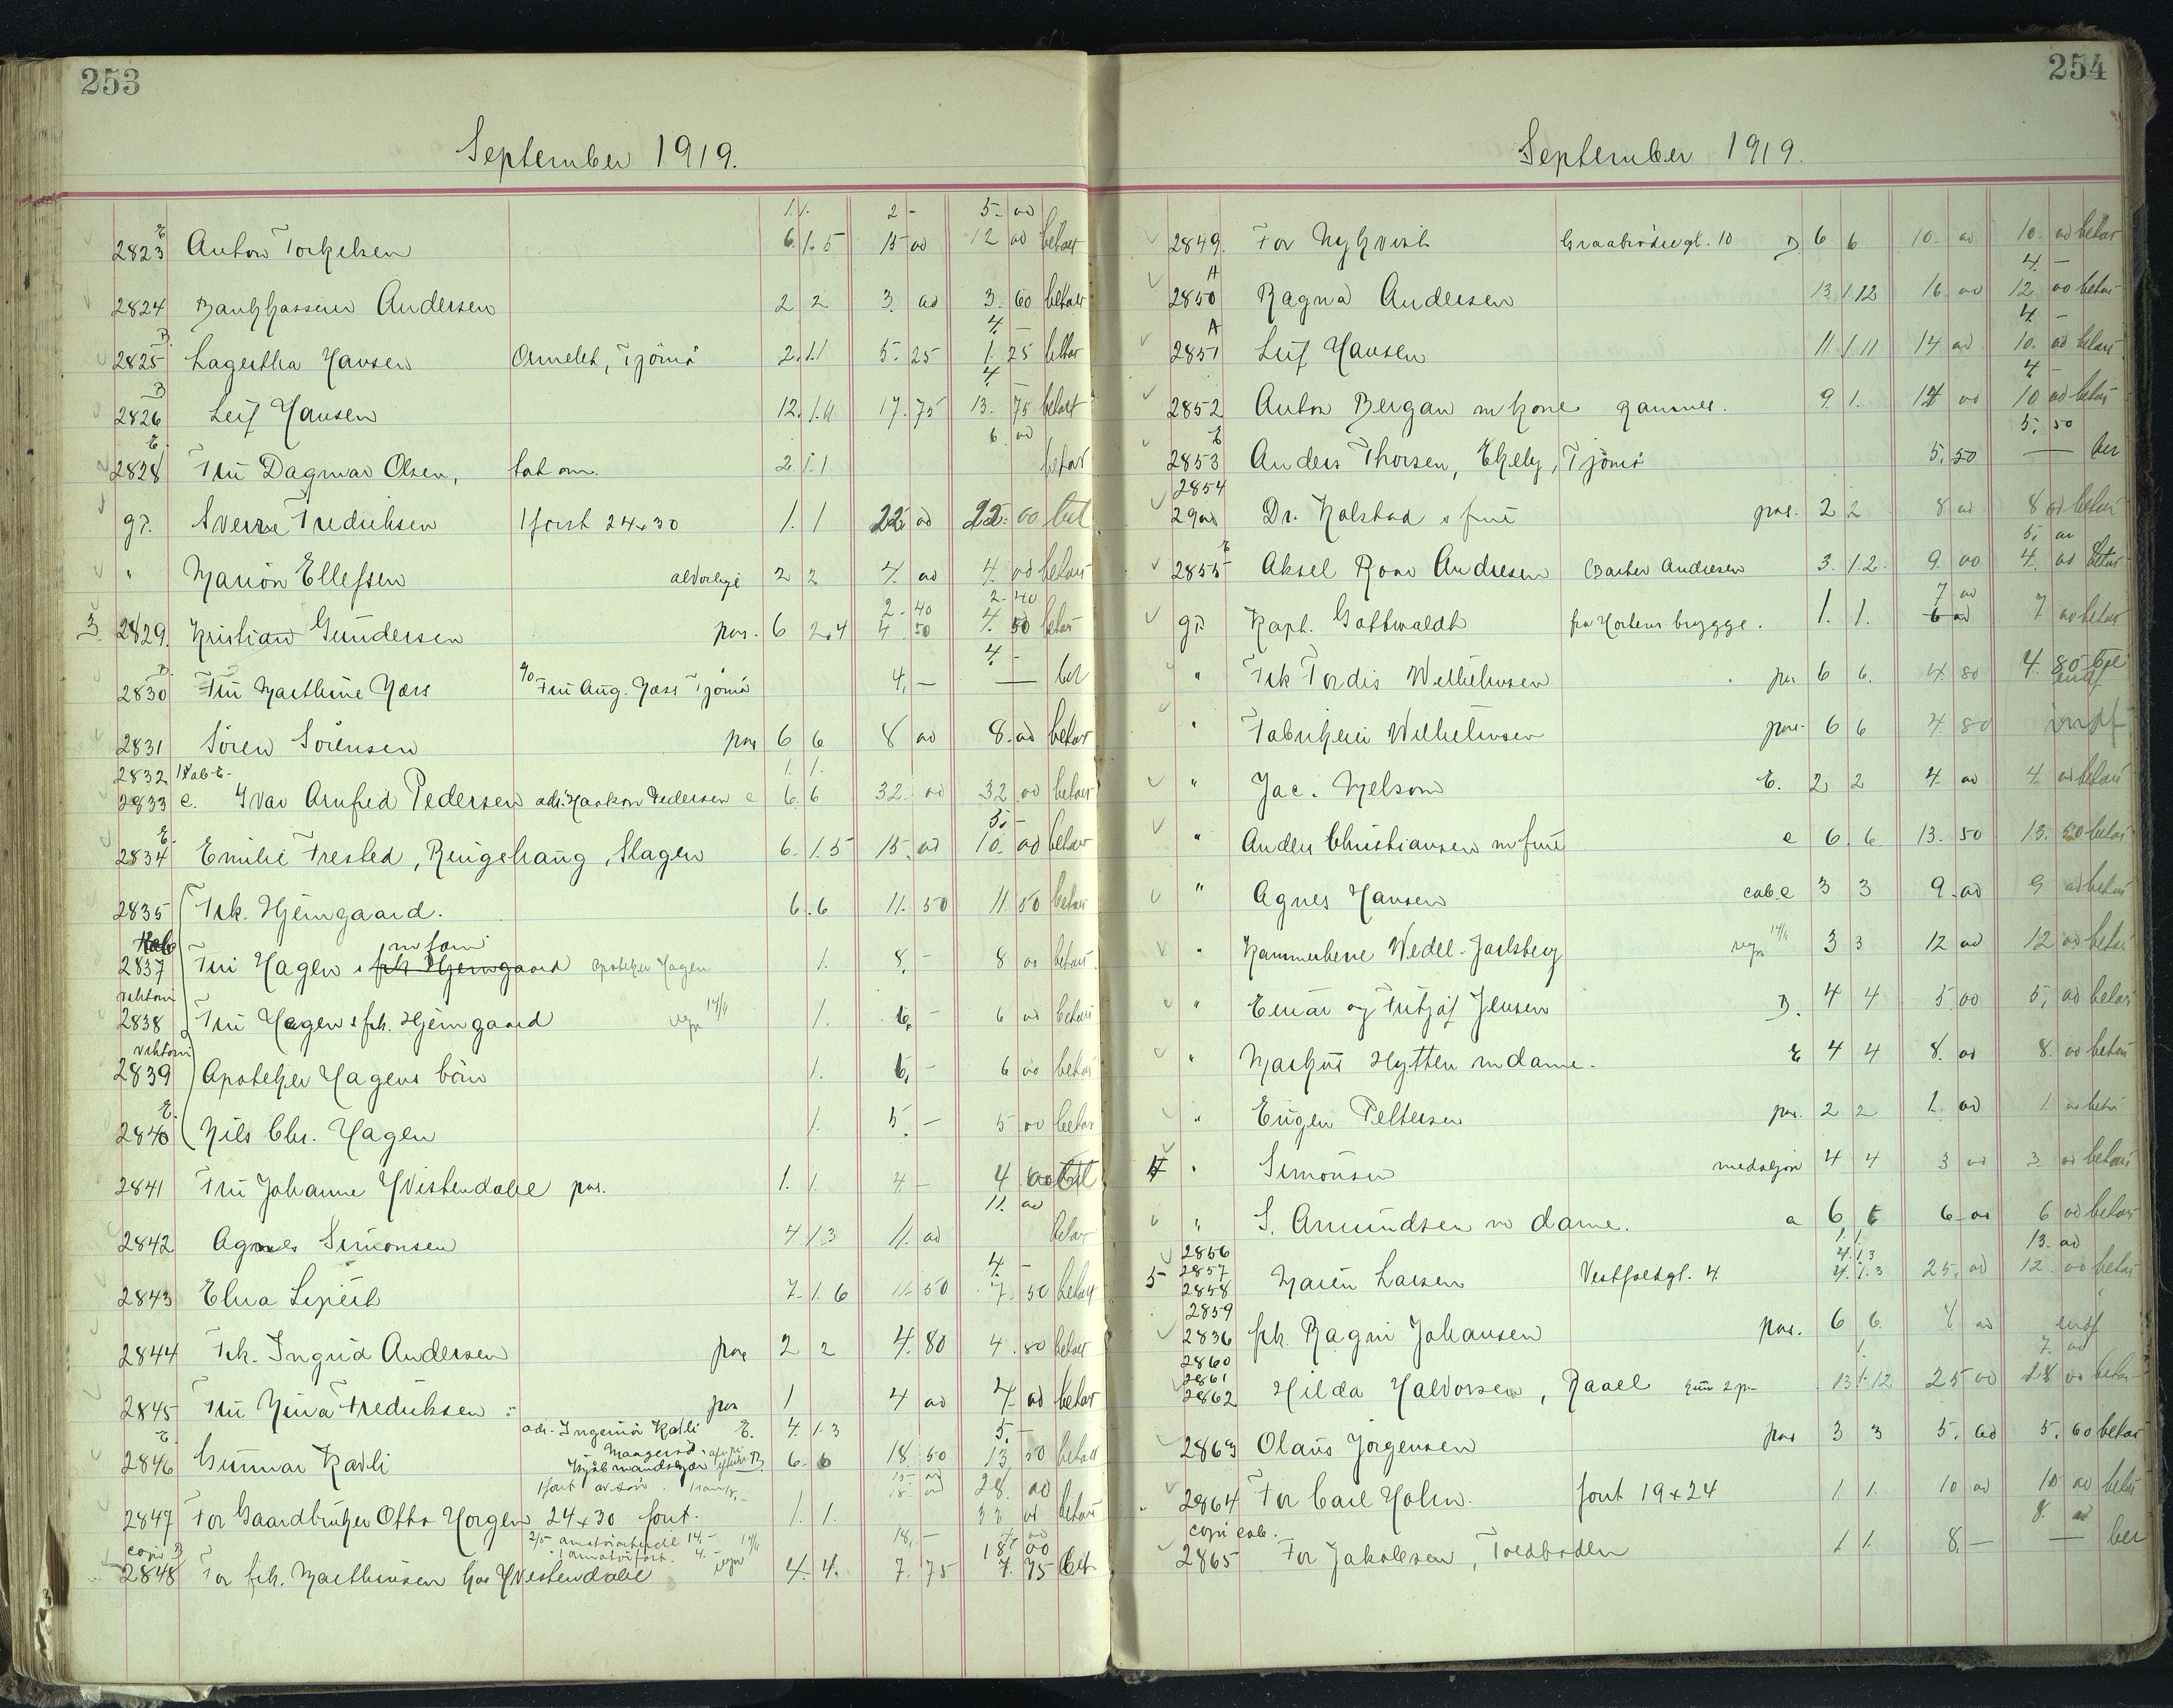 253
September 1919.
1. 1. 2 - 5.- 00
E
2823 Anton Torkelsen 6. 1. 5 15 00 12 00 betalt
2824 Bankkasserer Andersen 2 2 3. 00 3. 60 betalt
B. 4. -
2825 Lagertha Hansen Ormelet, Tjömö 2. 1. 1 5. 25 1. 25 betalt
B 4. -
2826 Leif Hansen 12. 1. 11 17. 75 13. 75 betalt
E. 6. 00
2828 Fru Dagmar Olsen, tat om. 2. 1. 1 betalt
gr. Sverre Fredriksen 1 forst 24x30 1. 1 22 00 22. 00 bet
" Marion Ellefsen alvorlige 2 2 4. 00 4. 00 betalt
2 - 40 2 - 40
3 2829. Kristian Gundersen pos. 6 2.4 4. 50 4. 50 betalt
B. 4. -
2830 Fru Marthine Næss c/o Fru Aug. Næss Tjömö 4. — — bet
2831 Sören Sörensen pos 6 6 8 00 8. 00 betalt
2832 1 Kab E. 1. 1.
2833 e. Ivar Arnfred Pedersen adr. Haakon Pedersen e 6. 6 32. 00 32. 00 betalt
E. 5. -
2834 Emilie Frested, Ringshaug, Slagen 6. 1. 5 15. 00 10. 00 betalt
2835 Frk. Hjemgaard. 6. 6 11. 50 11. 50 betalt
Kab m fam
2837 Fru Hagen & frk Hjemgaard apoteker Hagen 1. 8. - 8 00 betalt
viktoria 14/11
2838 Fru Hagen & frk. Hjemgaard regn 1. 6. - 6 00 betalt
viktoria
2839 Apoteker Hagens börn 1. 6. - 6 00 betalt
E.
2840 Nils Chr. Hagen 1. 5. - 5 00 betalt
2841 Fru Johanne Hvistendahl pos. 1. 1. 4. - 4 00 bet
11. 00
2842 Agnes Simonsen 4 1 3 11. 00 betalt
4. -
2843 Elna 7. 1. 6 11. 50 7. 50 betalt
2844 Frk. Ingrid Andersen pos 2 2 4. 80 4. 80 betalt
2845 Fru Nina Fredriksen pos 1 4 00 4. 00 betalt
E. adr. Ingeniör Karli E. 4. 1. 3 5. -
2846 Gunnar Karli B. 6. 6 18. 50 13. 50 betalt
28. 00
2847 For Gaardbruker Otto Horgen 24x30 fort. 1. 1. 33 00 betalt
copi B 2/5 14. - 18, - 18. 00
1 amatörfort. 4. - regn 14/11
2848 For frk. Marthinsen hos Hvistendahl 4. 4. 7. 75 7. 75 bet
254
September 1919.
2849. For Nykvist Graabrödregt. 10 B. 6 6 10. 00 10. 00 betalt
A 4. -
2850 Ragna Andersen 13. 1. 12 16. 00 12 00 betalt
A 4. -
2851 Leif Hansen 11. 1. 11 14 00 10. 00 betalt
4. -
2852 Anton Bergan m kone gammel. 9. 1. 14 00 10 00 betalt
E 5. 50
2853 Anders Thorsen, Ekely, Tjömö 5. 50 — bet
2854
2900 Dr. Kolstad & frue pos. 2 2 8 00 8 00 betalt
E 5. 00
2855 Aksel Roar Andresen Barber Andresen 3. 1. 2. 9. 00 4. 00 betalt
7 00
gr. Kapt. Gottwaldt fra Hortens brygge. 1. 1. 6 00 7 00 betalt
" Frk Tordis Wilhelmsen pos 6 6. 4. 80 4. 80 bet
" Fabrikeier Wilhelmsen pos. 6 6 4. 80
" Jac. Nelson E. 2 2 4. 00 4. 00 betalt
" Anders Christiansen m frue e 6. 6 13. 50 13. 50 betalt
" Agnes Hansen cab. e 3 3 9. 00 9 00 betalt
" Kammerherre Wedel-Jarlsberg regn 14/11 3 3 12 00 12 00 betalt
" Einar og Fritjof Jensen B. 4 4 5 00 5, 00 betalt
" Markus Hytten m dame. E 4 4 8. 00 8. 00 betalt
" Eugen Pettersen pos. 2 2 1. 00 1. 00 betalt
" Simonsen medaljon 4 4 3 00 3. 00 betalt
" S. Amundsen m dame. a 6 6 6 00 6 00 betalt
2856 1. 1. 13. 00
2857 4. 1. 3
5 2858 Maren Larsen Vestfoldgt. 4. 4. 1. 3 25. 00 12. 00 betalt
2859
2836 frk. Ragni Johansen pos. 6 6 4 00
2860 7. 00
2861
2862 Hilda Halvorsen, Raael 13 1. 12 25 00 28 00 betalt
2863 Olaus Jörgensen pos 3 3 5. 60 5. 60 betalt
2864 For Carl Holm. fort 19x24 1 1. 10 00 10 00 betalt
copi cab. 8. 00
2865 For Jakobsen, Toldboden 1 1. 8. — — bet